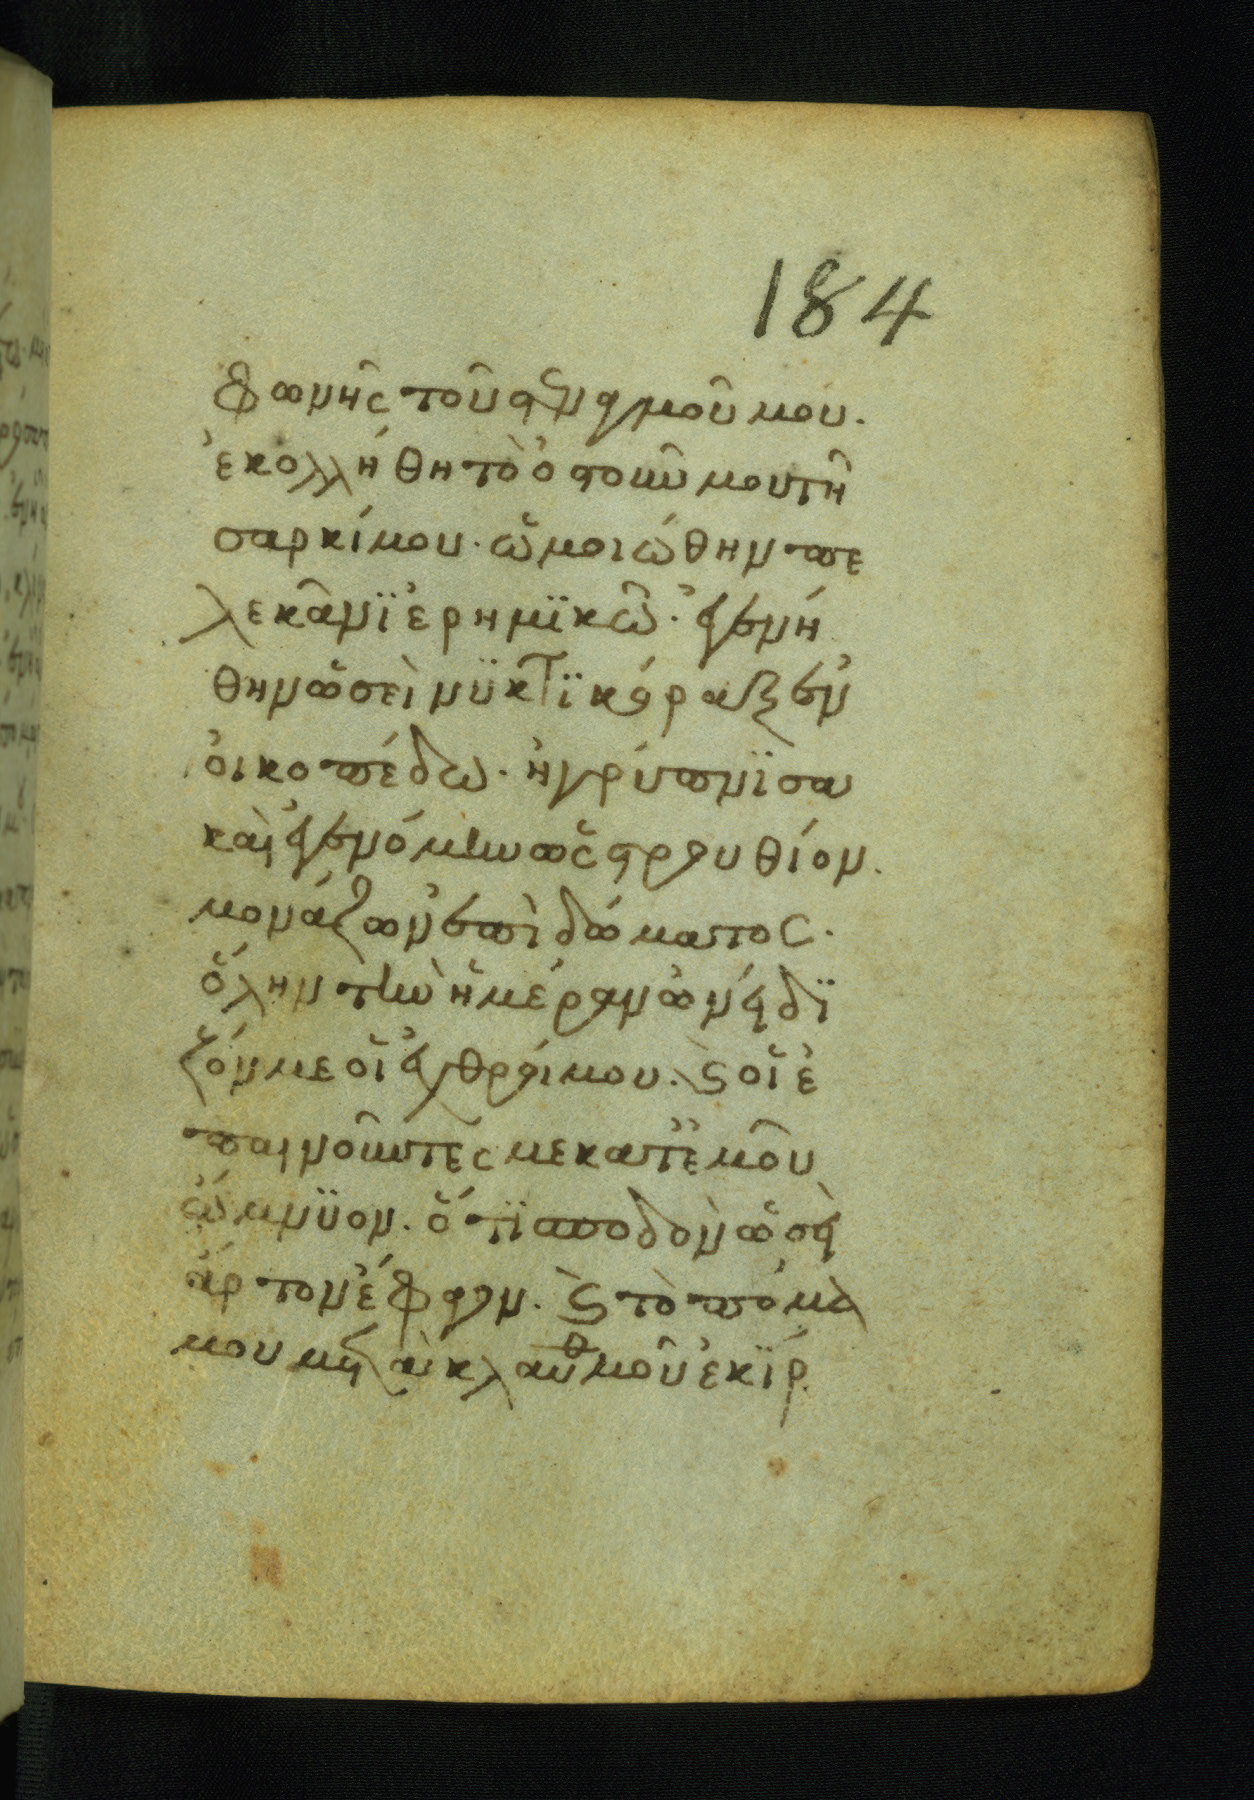 184
φωνῆς τοῦ στεναγμοῦ μου.
ἐκολλήθη τὸ ὀστοῦν μου τῆ
σαρκί μου. ὡμοιώθην πε
λεκᾶνϊ ἐρημϊκῶ. ἐγενή
θην ὡσεὶ νϋκτϊκόραξ ἐν
οἰκοπέδω. ἠγρύπνϊσα
καὶ ἐγενόμην ὡς στρουθίον.
μονάζων ἐπὶ δώματος.
ὅλην τὴν ἡμέραν ὠνείδϊ
ζόν με οἱ ἐχθροί μου. ϛ οἱ ἐ
παινοῦντες με κατ ἐμοῦ
ὤμνϋον. ὅτϊ σποδὸν ὡσεὶ
ἄρτον ἔφαγον. ϛ τὸ πόμα
μου μετὰ κλαυθμοῦ ἐκίρ